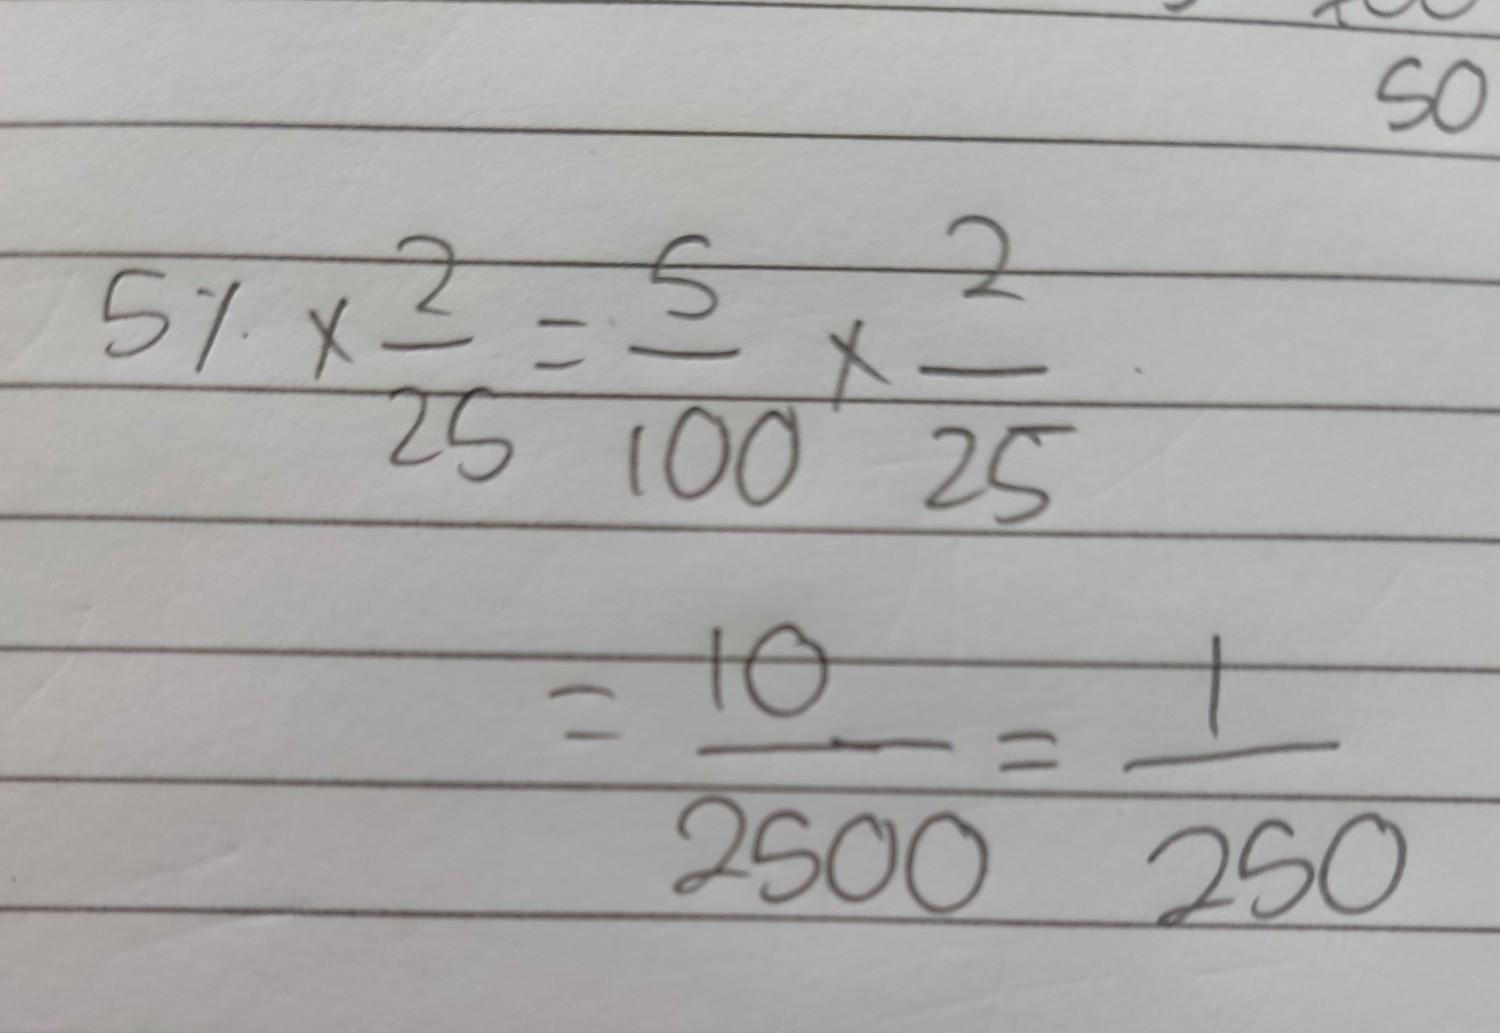 50
5% × 2/25 = 5/100 × 2/25
= 10/2500 = 1/250